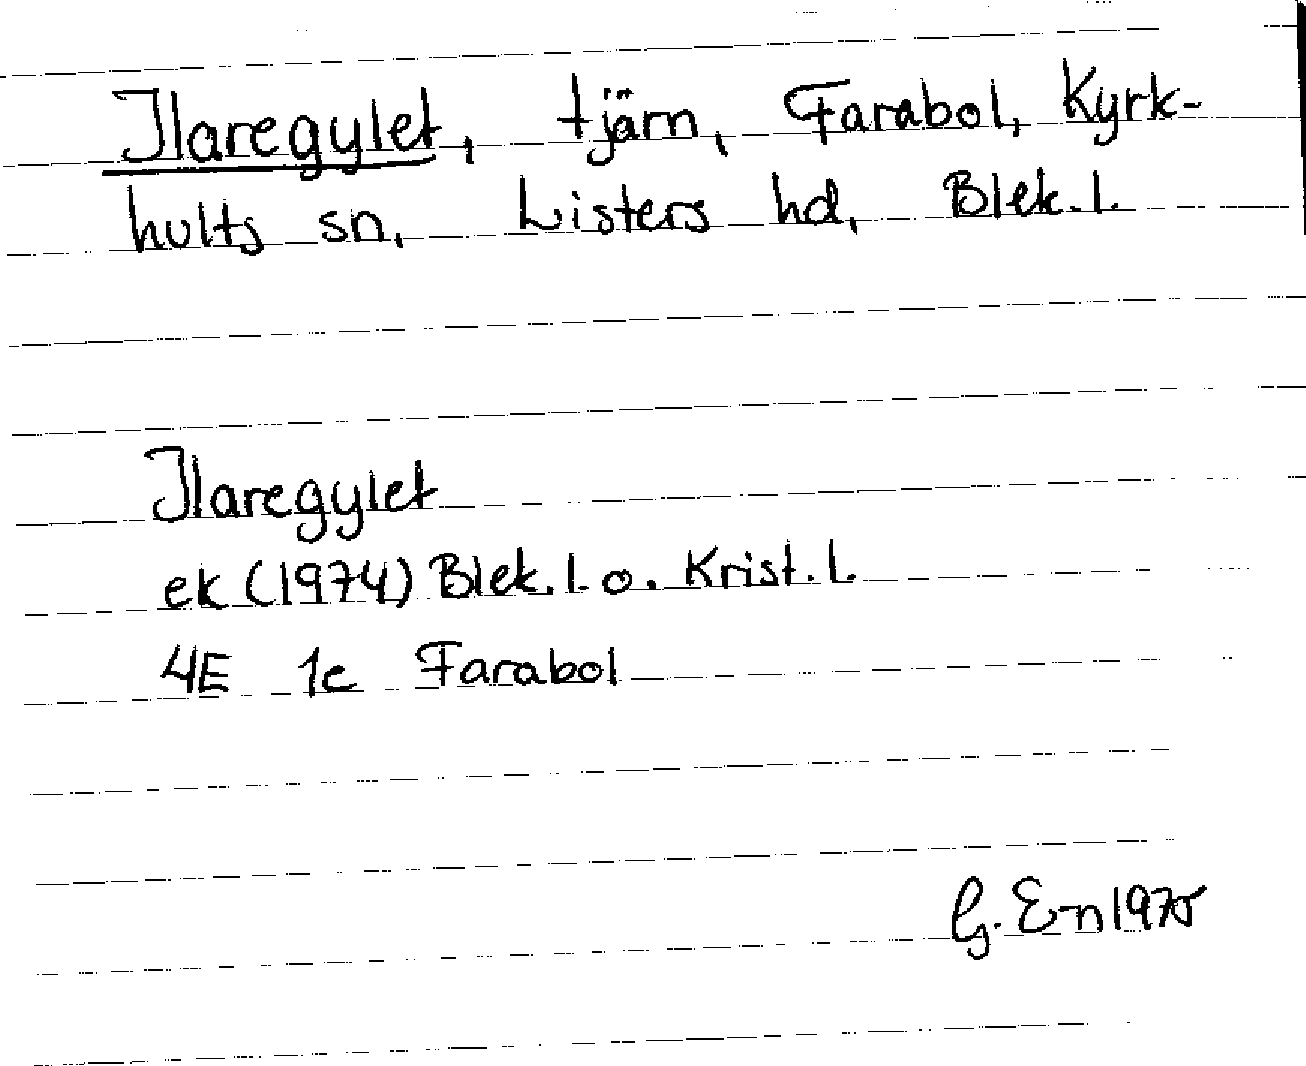 Ilaregylet, tjärn, Farabol, Kyrk-
hults sn, Listers hd, Blek. l.
Ilaregylet
ek (1974) Blek. l. o. Krist. l.
4E 1c Farabol
G. E-n 1975